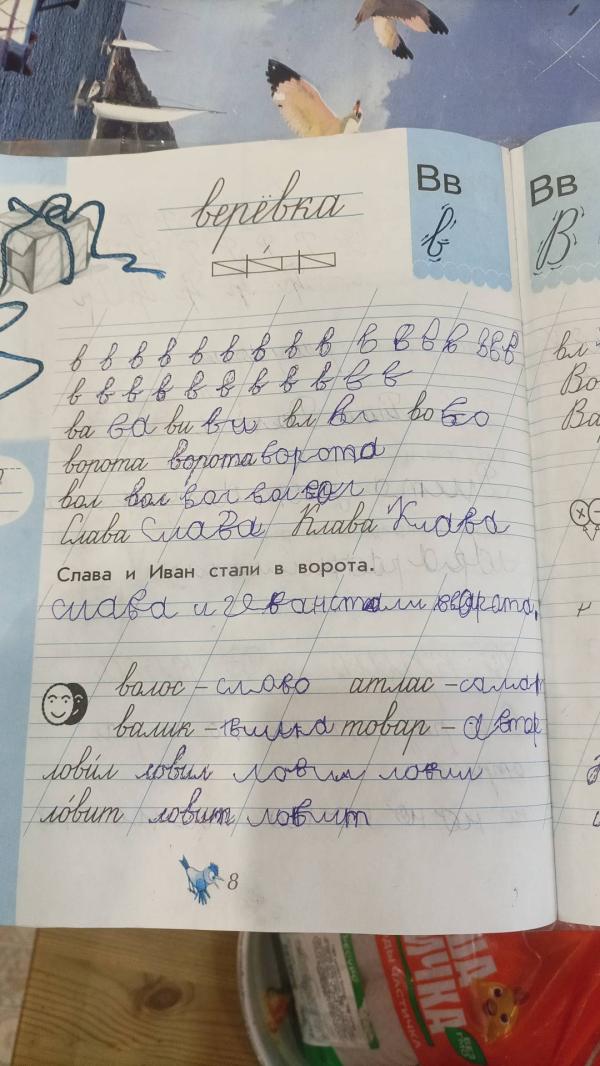 верёвка
Вв
в
Вв
В
в в в в в в в в в в в в в в в в
в в в в в в в в в в в
ва ва ви ви вл вл во во
ворота ворота ворота
вол вол вол вол вол
Слава слава Клава Клава
Слава и Иван стали в ворота.
слава и
волос – слово атлас – салат
валик – товар – автор
лови́л ловил ловил ловил
ло́вит ловит ловит
8
вл
Во
Ва